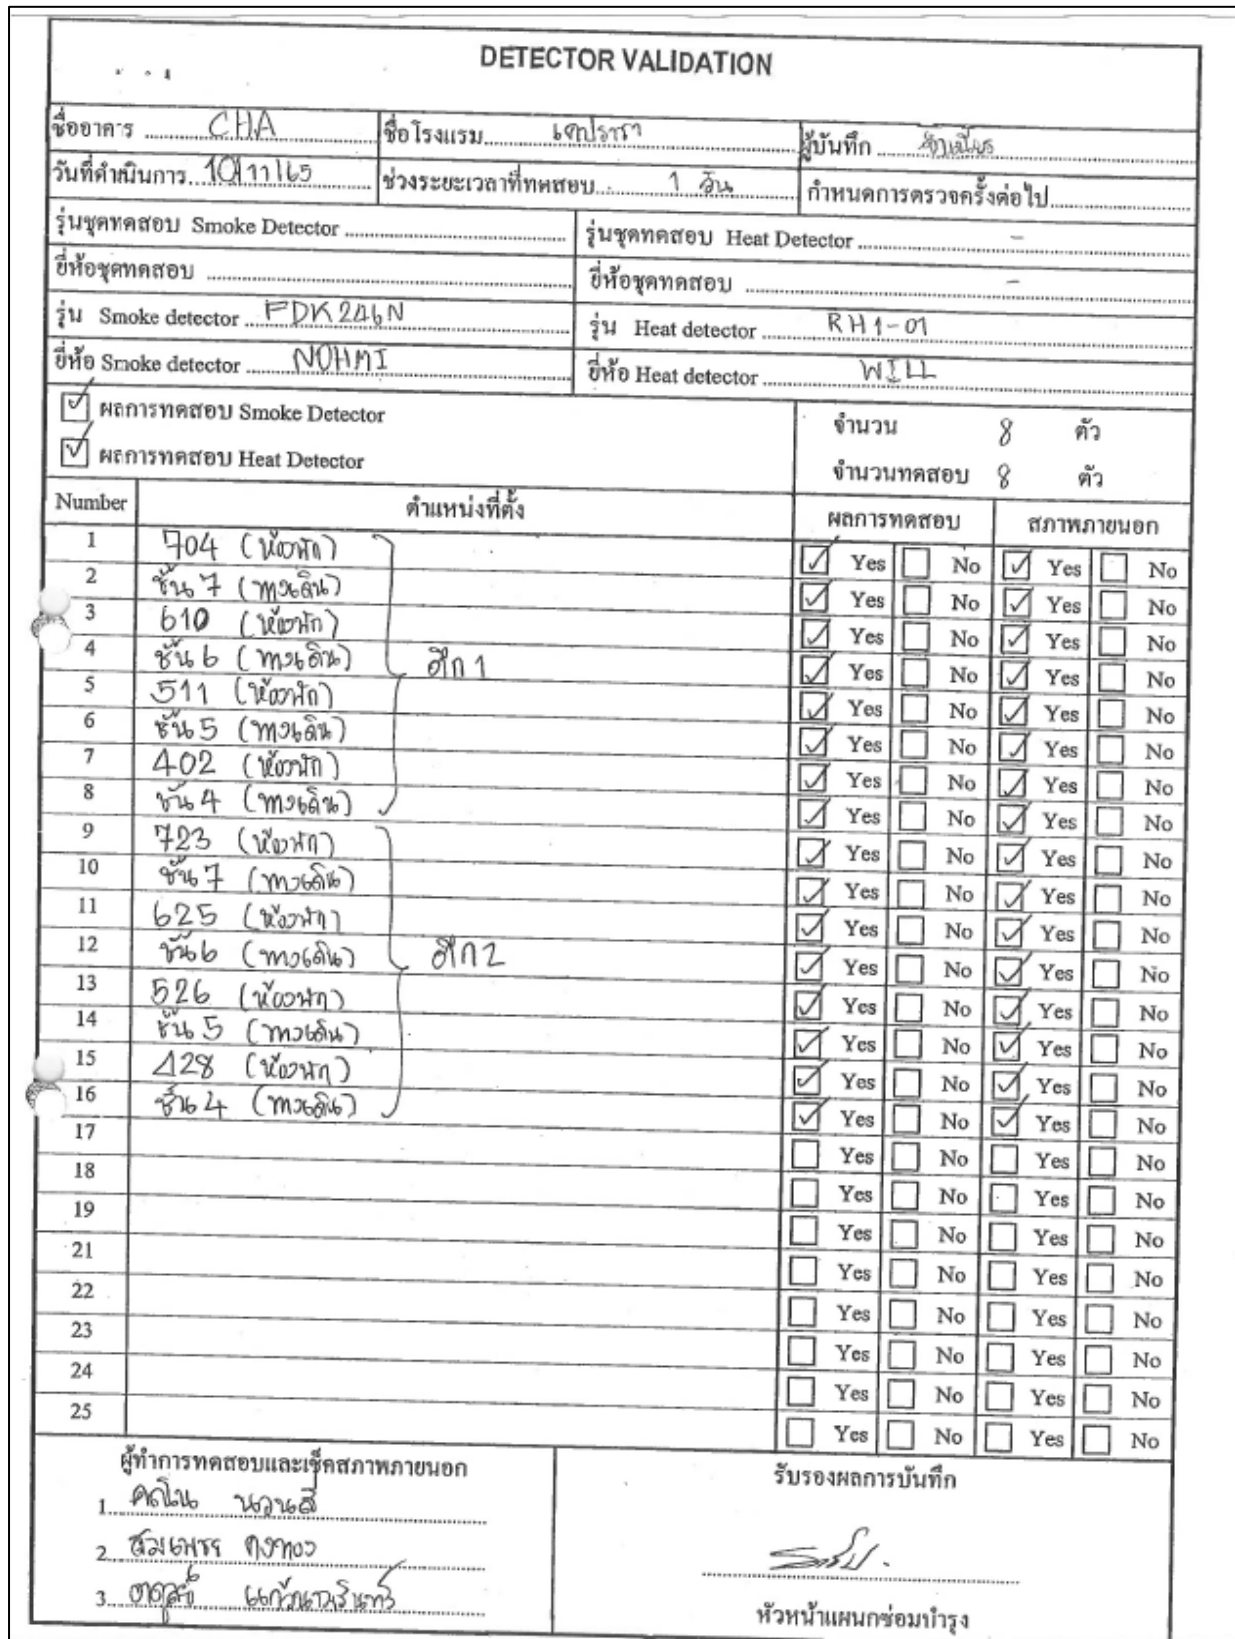 DETECTOR VALIDATION
ชื่ออาคาร CHA ชื่อโรงแรม เคปราชา ผู้บันทึก
วันที่ดำเนินการ 10/11/65 ช่วงระยะเวลาที่ทดสอบ 1 วัน กำหนดการตรวจครั้งต่อไป
รุ่นชุดทดสอบ Smoke Detector รุ่นชุดทดสอบ Heat Detector -
ยี่ห้อชุดทดสอบ ยี่ห้อชุดทดสอบ -
รุ่น Smoke detector FDK246N รุ่น Heat detector RH1-01
ยี่ห้อ Smoke detector NOHMI ยี่ห้อ Heat detector WILL
ผลการทดสอบ Smoke Detector จำนวน 8 ตัว
ผลการทดสอบ Heat Detector จำนวนทดสอบ 8 ตัว
Number ตำแหน่งที่ตั้ง ผลการทดสอบ สภาพภายนอก
1 704 (ห้องพัก) Yes No Yes No
2 ชั้น 7 (ทางเดิน) Yes No Yes No
3 610 (ห้องพัก) Yes No Yes No
4 ชั้น 6 (ทางเดิน) ตึก 1 Yes No Yes No
5 511 (ห้องพัก) Yes No Yes No
6 ชั้น 5 (ทางเดิน) Yes No Yes No
7 402 (ห้องพัก) Yes No Yes No
8 ชั้น 4 (ทางเดิน) Yes No Yes No
9 723 (ห้องพัก) Yes No Yes No
10 ชั้น 7 (ทางเดิน) Yes No Yes No
11 625 (ห้องพัก) Yes No Yes No
12 ชั้น 6 (ทางเดิน) ตึก 2 Yes No Yes No
13 526 (ห้องพัก) Yes No Yes No
14 ชั้น 5 (ทางเดิน) Yes No Yes No
15 428 (ห้องพัก) Yes No Yes No
16 ชั้น 4 (ทางเดิน) Yes No Yes No
17 Yes No Yes No
18 Yes No Yes No
19 Yes No Yes No
21 Yes No Yes No
22 Yes No Yes No
23 Yes No Yes No
24 Yes No Yes No
25 Yes No Yes No
ผู้ทำการทดสอบและเช็คสภาพภายนอก รับรองผลการบันทึก
1. นวนสี
2. คงทอง
3.
หัวหน้าแผนกซ่อมบำรุง